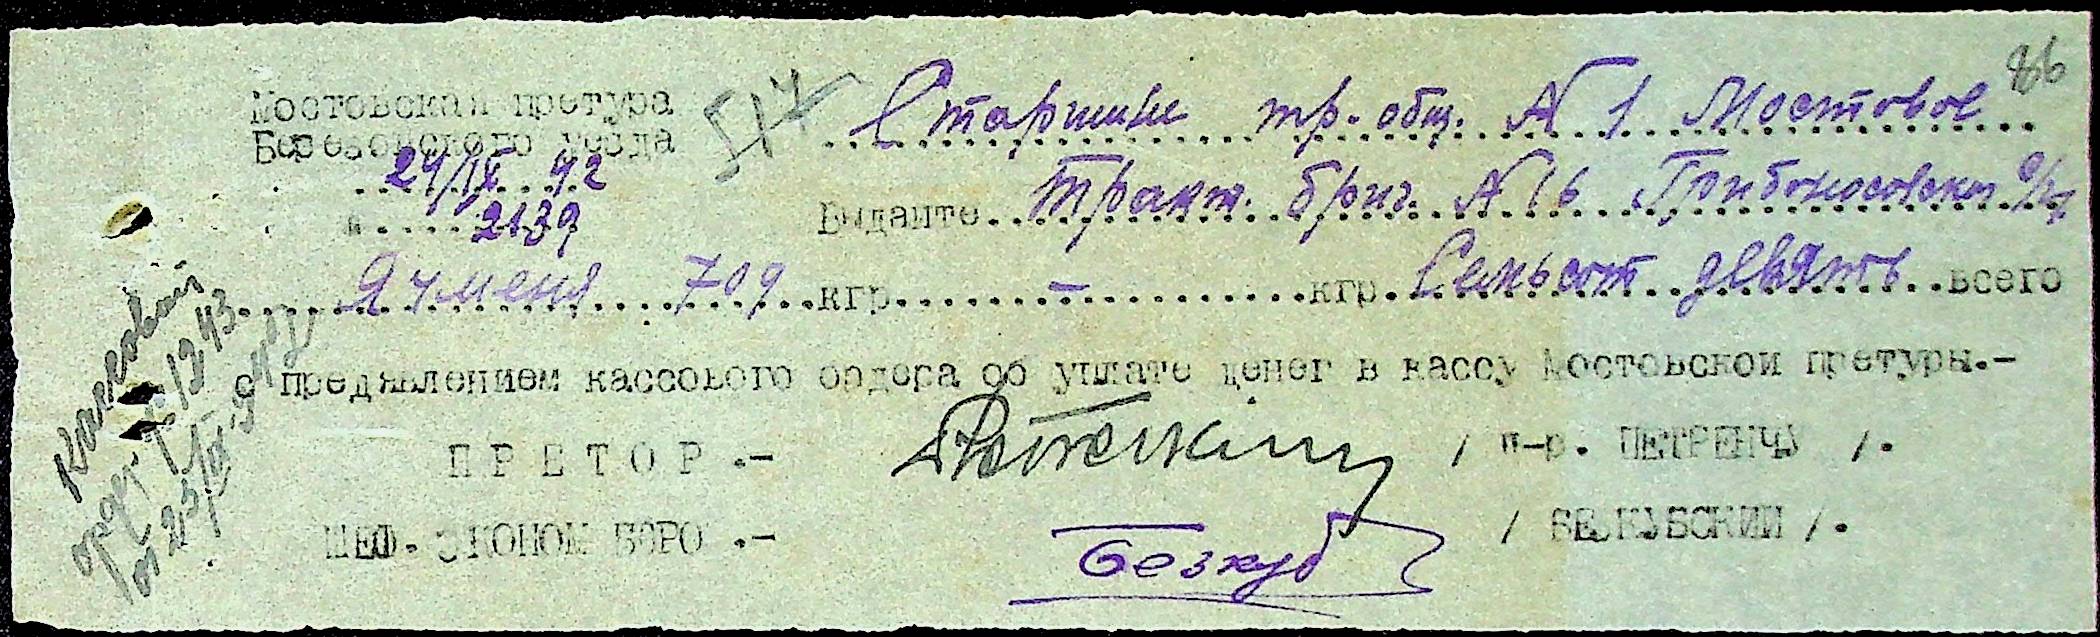 86
517
Мостовская претура
Березовского уезда
24/IX 42
№ 2139
Старшине тр. общ. № 1 Мостовое
Выдайте Тракт. бриг. № 16
Ячменя 709 кгр. - кгр. Семьсот девять всего
с предявлением кассового ордера об уплате денег в кассу Мостовской претуры.-
ПРЕТОР.- / П-р. ПЕТРЕНЧУ /.
ШЕФ. ЭКОНОМ БЮРО.- Безкуб / БЕЗКУБСКИЙ /.
Кассовый
ордер
от 23/IX